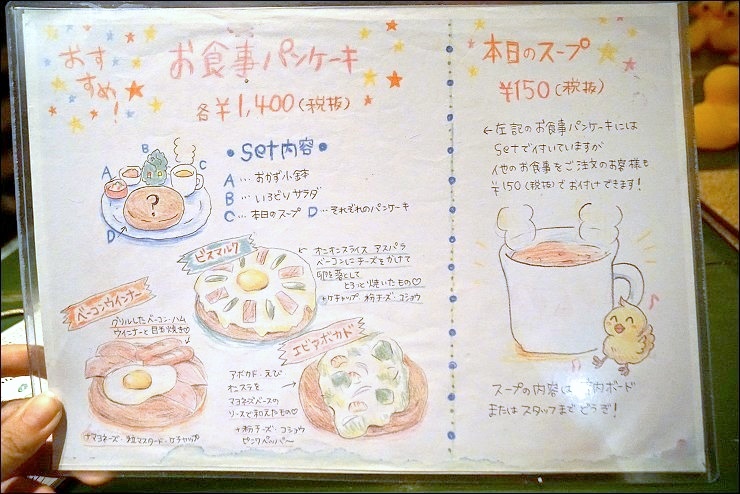 おすすめ!
お食事パンケーキ
各¥1,400(税抜)
•Set内容•
A…おかず小鉢
B…いろどりサラダ
C…本日のスープ D…それぞれのパンケーキ
A
B
C
D
?
ビスマルク
オニオンスライス アスパラ
ベーコンにチーズをかけて
卵を落として
とろっと焼いたもの♡
+ケチャップ 粉チーズ・コショウ
ベーコンウインナー
グリルしたベーコン・ハム
ウインナーと目玉焼き♡
+マヨネーズ・粒マスタード・ケチャップ
エビアボカド
アボカド・えび
オニスラを
マヨネーズベースの
ソースで和えたもの♡
+粉チーズ・コショウ
ピンクペッパー
本日のスープ
¥150(税抜)
←左記のお食事パンケーキには
Setで付いていますが
他のお食事をご注文のお客様も
¥150(税抜)でお付けできます!
スープの内容は店内ボード
またはスタッフまでどうぞ!